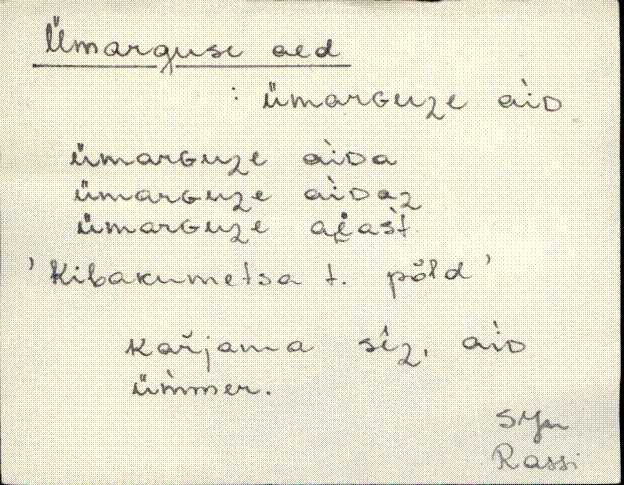 Ümarguse aed
: ümarguze aìd
ümarguze aìda
ümarguze aìdaz
ümarguze
'Kibakumetsa t. põld'
karjama sìz, aìd
ümmer.
Rassi